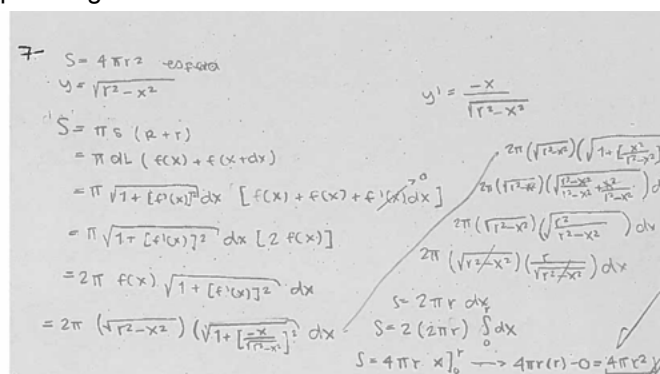 7- S = 4πr² esfera
y = √(r²-x²)
S = π s (R + r)
= π dL ( f(x) + f(x+dx)
= π √(1 + [f'(x)]²) dx [f(x) + f(x) + f'(x)dx] → 0
= π √(1 + [f'(x)]²) dx [2 f(x)]
= 2π f(x) √(1 + [f'(x)]²) dx
= 2π (√(r²-x²)) (√(1 + [-x/√(r²-x²)]²) dx
y' = -x/√(r²-x²)
2π (√(r²-x²)) (√(1 + [x²/(r²-x²)])
2π (√(r²-x²)) (√((r²-x²)/(r²-x²) + x²/(r²-x²))) d
2π (√(r²-x²)) (√(r²/(r²-x²))) dx
2π (√(r²-x²)) (r/√(r²-x²)) dx
S = 2πr dx
S = 2 (2πr) ∫₀ʳ dx
S = 4πr x]₀ʳ → 4πr(r) - 0 = 4πr²